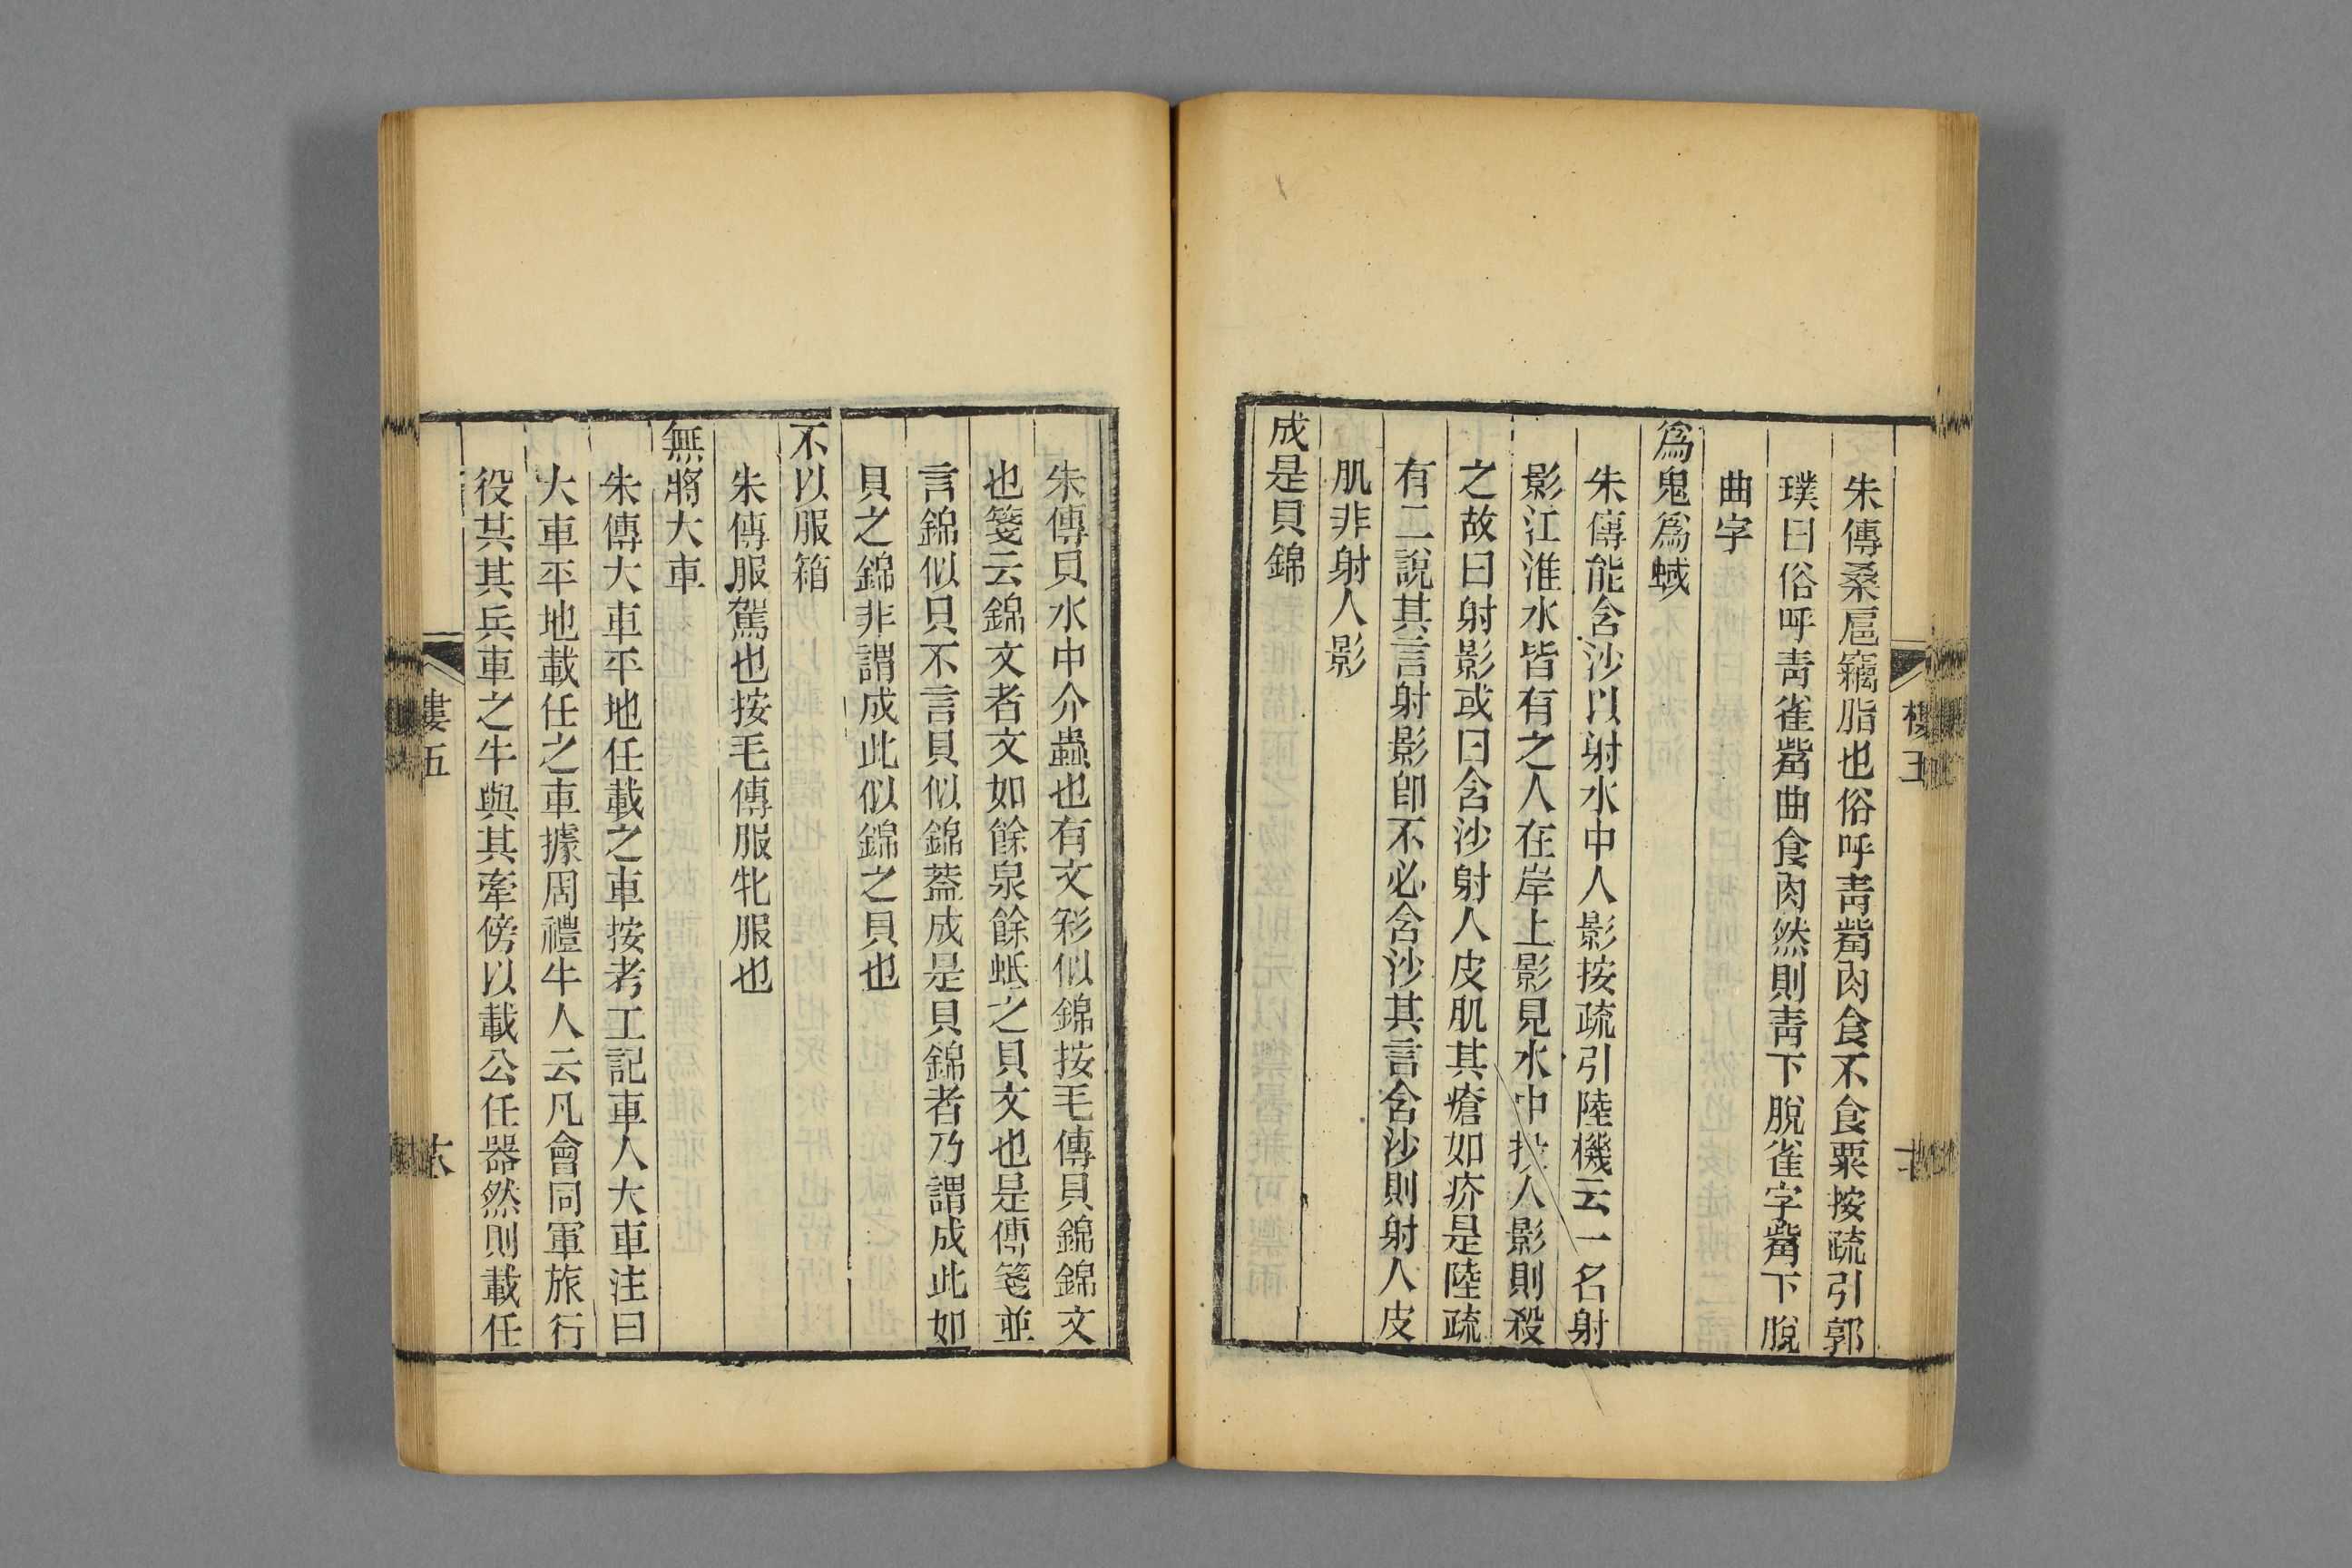 朱傳桑扈竊脂也俗呼青觜肉食不食粟按疏引郭
璞曰俗呼青雀觜曲食肉然則青下脫雀字觜下脫
曲字
爲鬼爲蜮
朱傳能含沙以射水中人影按疏引陸機云一名射
影江淮水皆有之人在岸上影見水中投人影則殺
之故曰射影或曰含沙射人皮肌其瘡如疥是陸疏
有二說其言射影卽不必含沙其言含沙則射人皮
肌非射人影
成是貝錦
朱傳貝水中介蟲也有文彩似錦按毛傳貝錦錦文
也箋云錦文者文如餘泉餘蚳之貝文也是傳箋並
言錦似貝不言貝似錦葢成是貝錦者乃謂成此如
貝之錦非謂成此似錦之貝也
不以服箱
朱傳服駕也按毛傳服牝服也
無將大車
朱傳大車平地任載之車按考工記車人大車注曰
大車平地載任之車據周禮牛人云凡會同軍旅行
役共其兵車之牛與其牽傍以載公任器然則載任